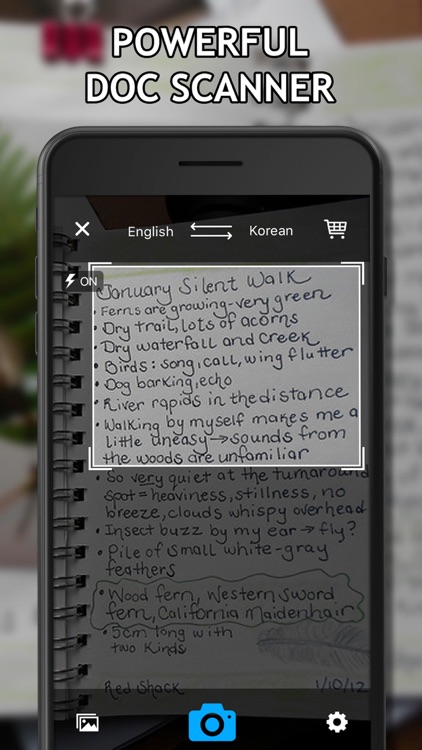 POWERFUL
DOC SCANNER
English
Korean
ON
January Silent Walk
• Ferns are growing-very green
• Dry trail, lots of acorns
• Dry waterfall and creek
• Birds: song, call, wing flutter
• Dog barking, echo
• River rapids in the distance
• Walking by myself makes me a
little uneasy→sounds from
the woods are unfamiliar
• So very quiet at the turnaround
spot = heaviness, stillness, no
breeze, clouds whispy overhead
• Insect buzz by my ear → fly?
• Pile of small white-gray
feathers
• Wood fern, Western sword
fern, California Maidenhair
• 5cm long with
two kinds
Red Shack
1/10/12